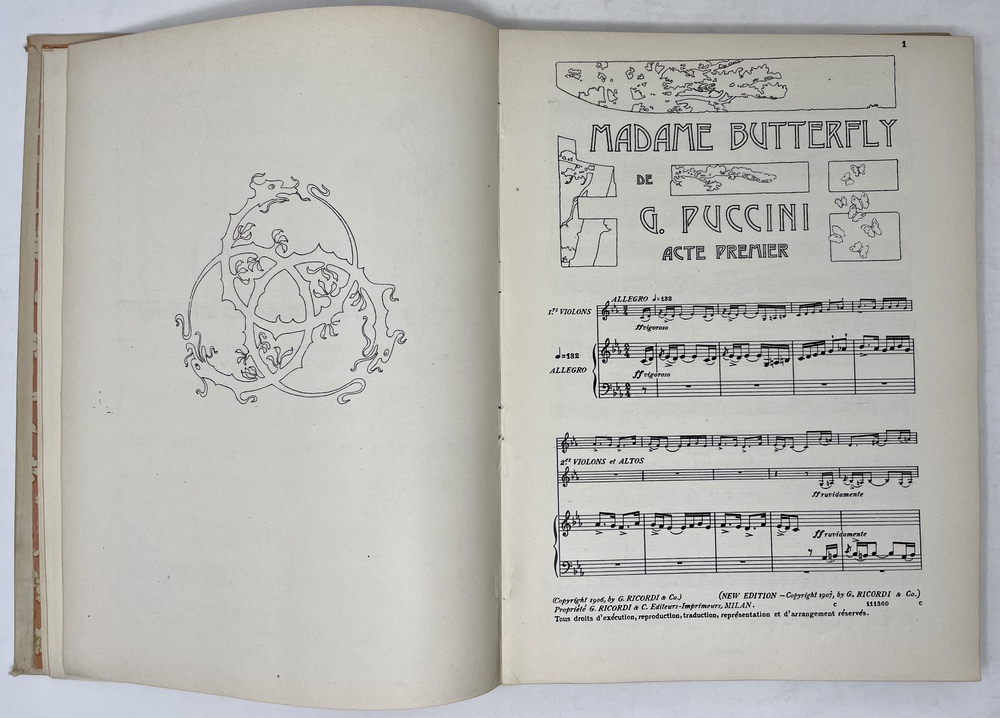 1
MADAME BUTTERFLY
DE
G. PUCCINI
ACTE PREMIER
ALLEGRO ♩=132
1.rs VIOLONS
ff vigoroso
♩=132
ALLEGRO
ff vigoroso
2.ds VIOLONS et ALTOS
ff ruvidamente
ff ruvidamente
(Copyright 1906, by G. RICORDI & Co.) (NEW EDITION – Copyright 1907, by G. RICORDI & Co.)
Propriété G. RICORDI & C. Editeurs-Imprimeurs, MILAN. c 111360 c
Tous droits d'exécution, reproduction, traduction, représentation et d'arrangement réservés.